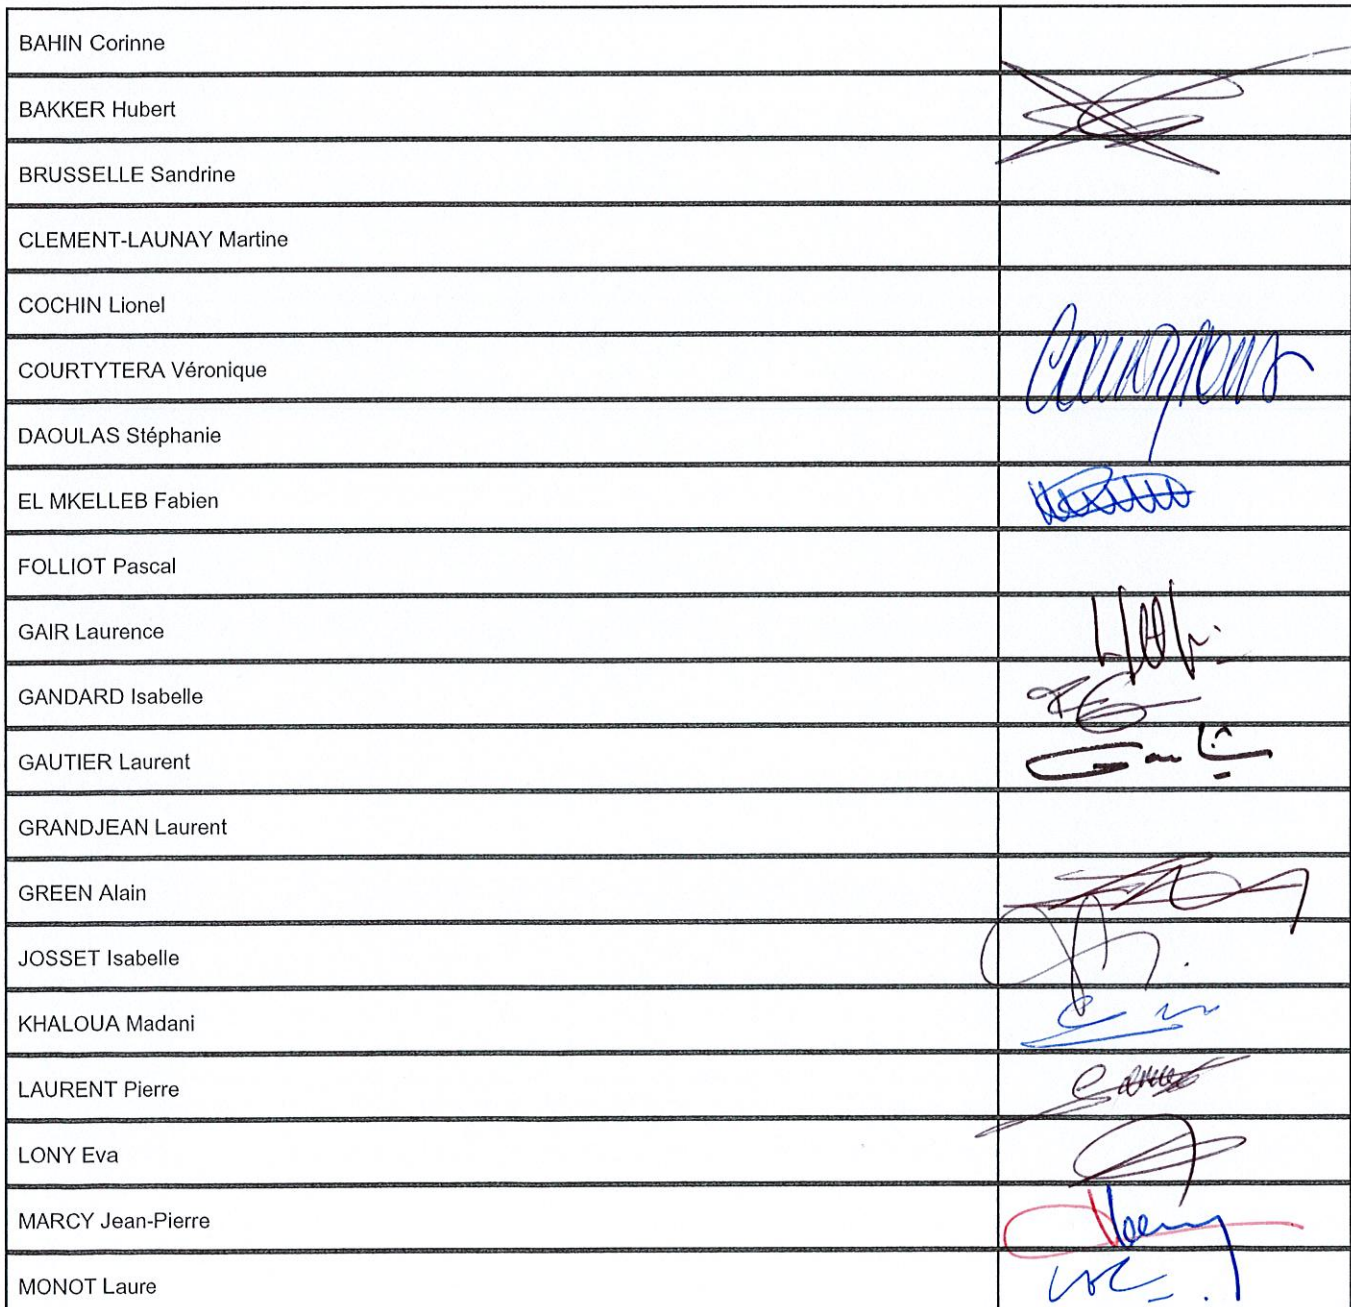 BAHIN Corinne
BAKKER Hubert
BRUSSELLE Sandrine
CLEMENT-LAUNAY Martine
COCHIN Lionel
COURTYTERA Véronique
DAOULAS Stéphanie
EL MKELLEB Fabien
FOLLIOT Pascal
GAIR Laurence
GANDARD Isabelle
GAUTIER Laurent
GRANDJEAN Laurent
GREEN Alain
JOSSET Isabelle
KHALOUA Madani
LAURENT Pierre
LONY Eva
MARCY Jean-Pierre
MONOT Laure